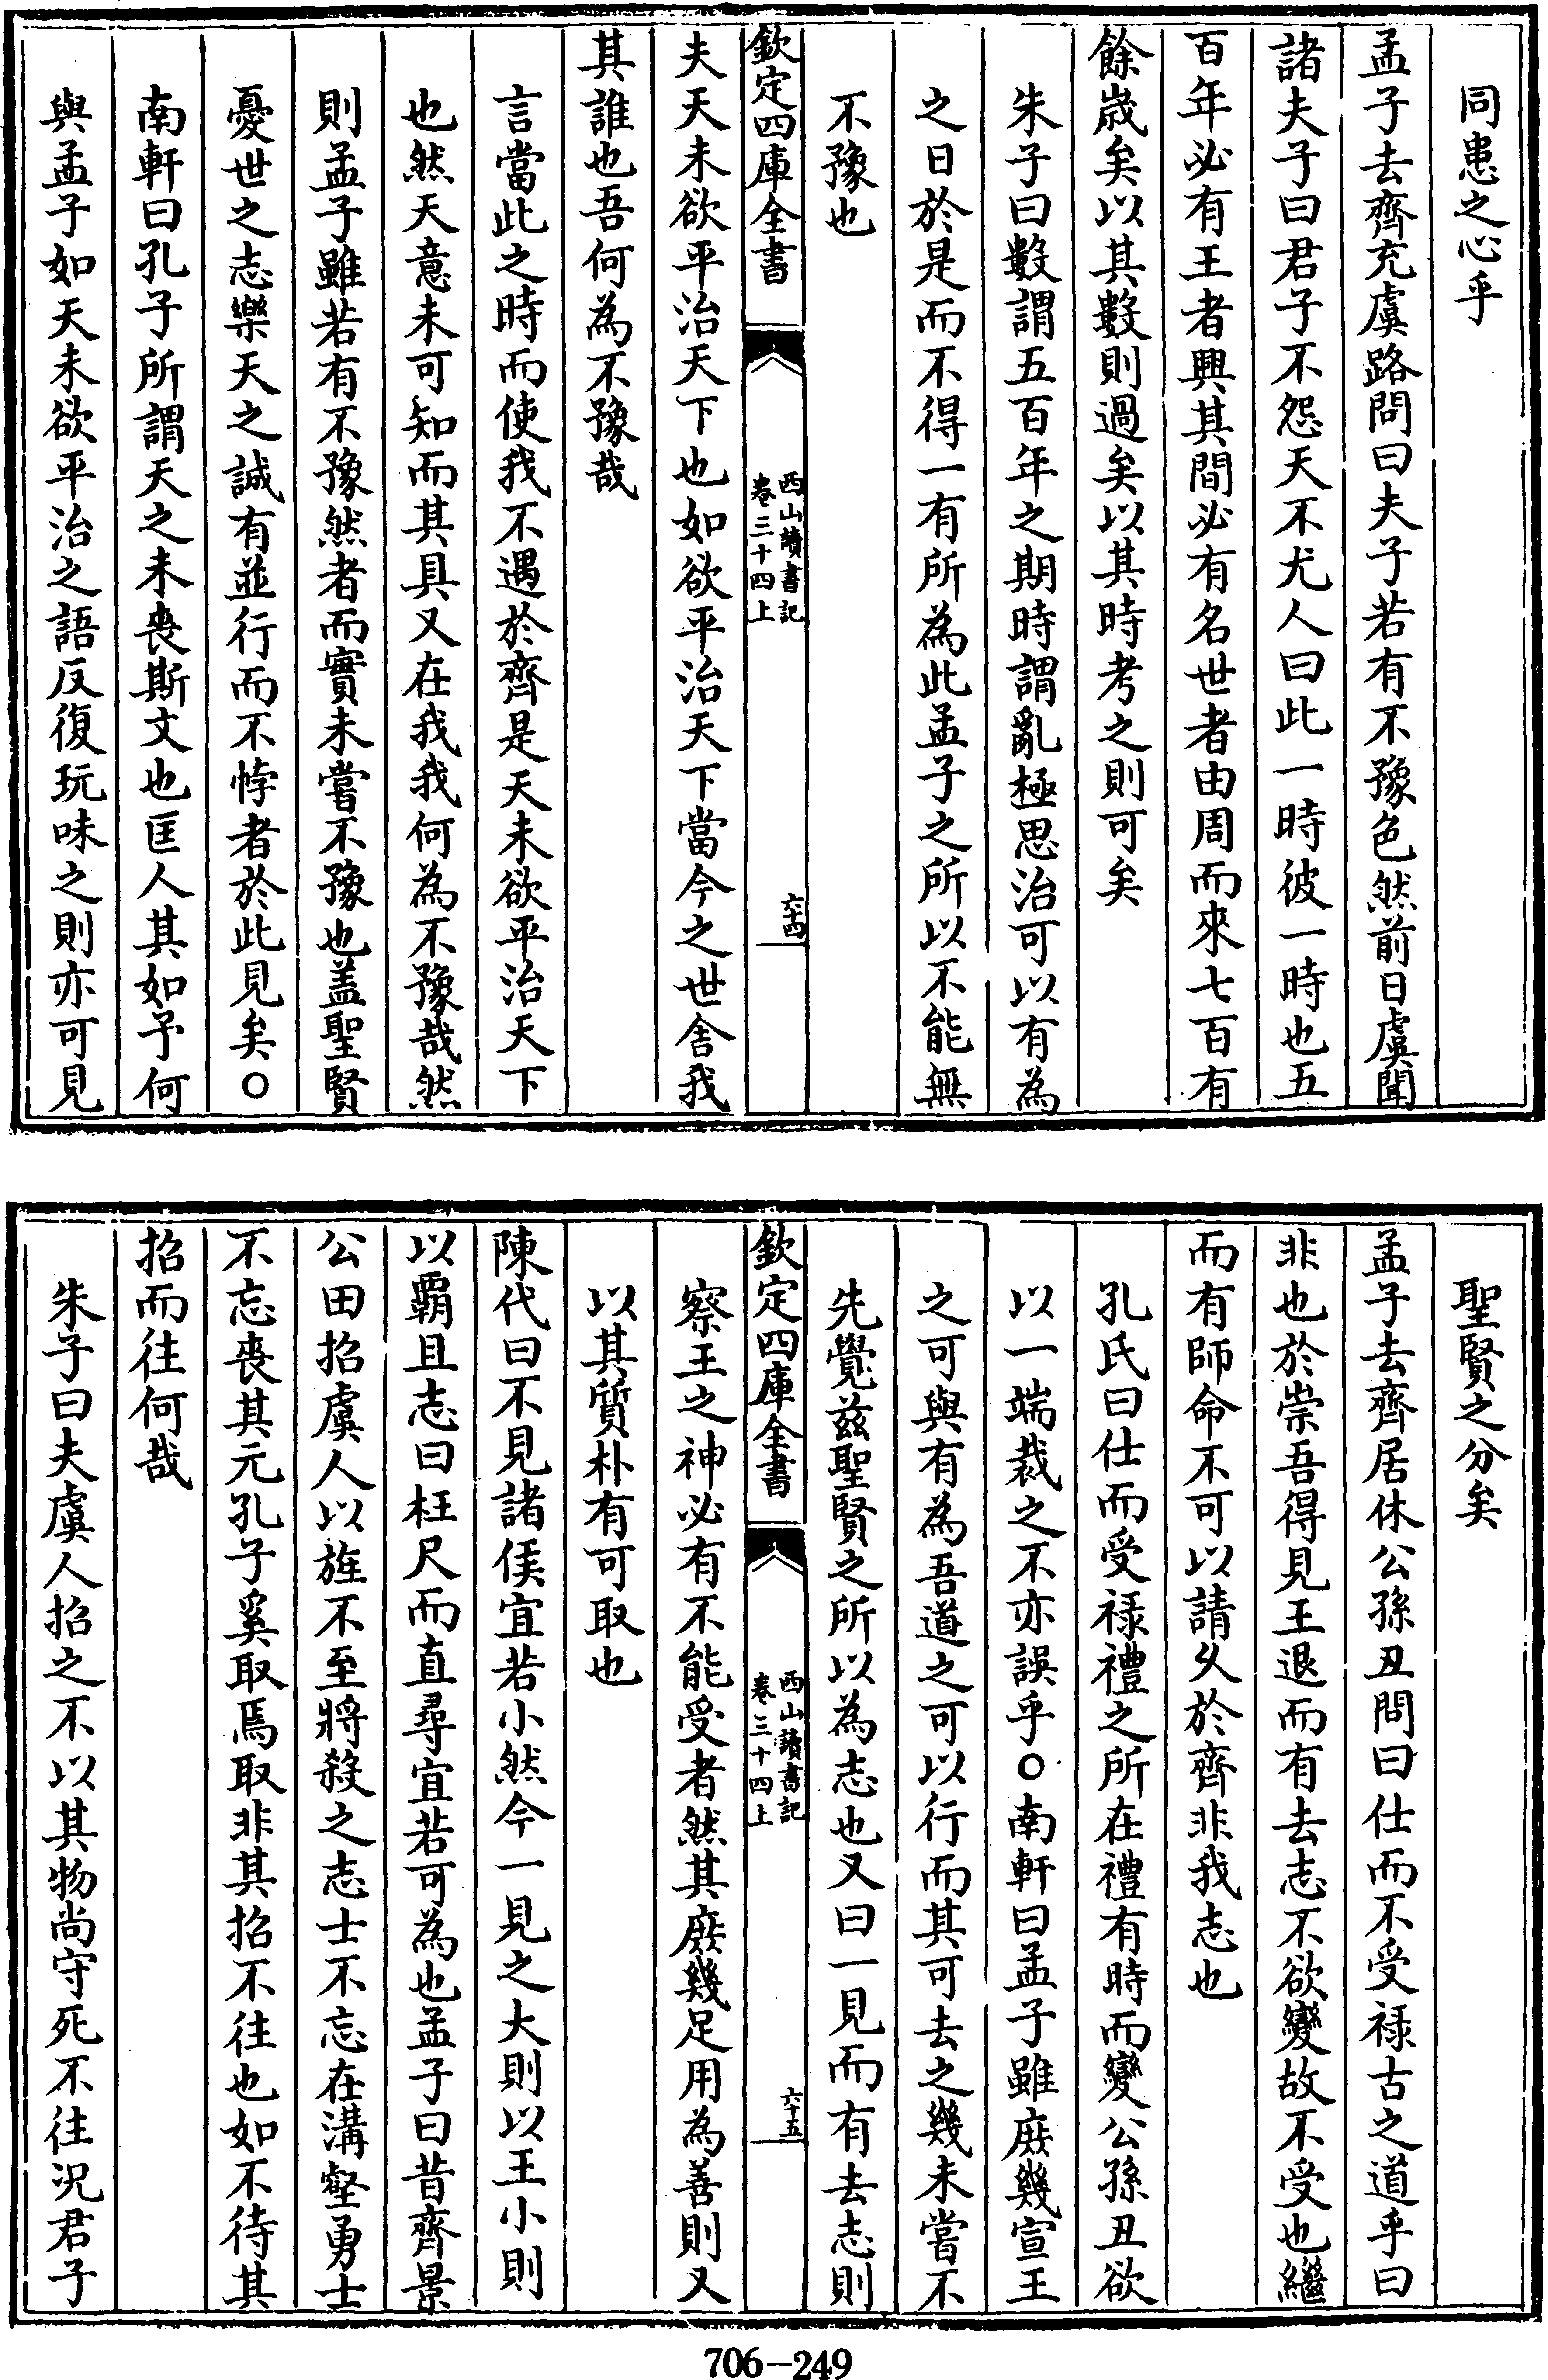 同患之心乎
孟子去齊充虞路問曰夫子若有不豫色然前日虞聞
諸夫子曰君子不怨天不尤人曰此一時彼一時也五
百年必有王者興其間必有名世者由周而來七百有
餘歲矣以其數則過矣以其時考之則可矣
朱子曰數謂五百年之期時謂亂極思治可以有為
之日於是而不得一有所為此孟子之所以不能無
不豫也
欽定四庫全書
西山讀書記
卷三十四上
六十四
夫天未欲平治天下也如欲平治天下當今之世舍我
其誰也吾何為不豫哉
言當此之時而使我不遇於齊是天未欲平治天下
也然天意未可知而其具又在我我何為不豫哉然
則孟子雖若有不豫然者而實未嘗不豫也盖聖賢
憂世之志樂天之誠有並行而不悖者於此見矣○
南軒曰孔子所謂天之未喪斯文也匡人其如予何
與孟子如天未欲平治之語反復玩味之則亦可見
聖賢之分矣
孟子去齊居休公孫丑問曰仕而不受禄古之道乎曰
非也於崇吾得見王退而有去志不欲變故不受也繼
而有師命不可以請久於齊非我志也
孔氏曰仕而受禄禮之所在禮有時而變公孫丑欲
以一端裁之不亦誤乎○南軒曰孟子雖庻幾宣王
之可與有為吾道之可以行而其可去之幾未嘗不
先覺兹聖賢之所以為志也又曰一見而有去志則
欽定四庫全書
西山讀書記
卷三十四上
六十五
察王之神必有不能受者然其庻幾足用為善則又
以其質朴有可取也
陳代曰不見諸侯宜若小然今一見之大則以王小則
以霸且志曰枉尺而直尋宜若可為也孟子曰昔齊景
公田招虞人以旌不至將殺之志士不忘在溝壑勇士
不忘喪其元孔子奚取焉取非其招不往也如不待其
招而往何哉
朱子曰夫虞人招之不以其物尚守死不往况君子
706-249